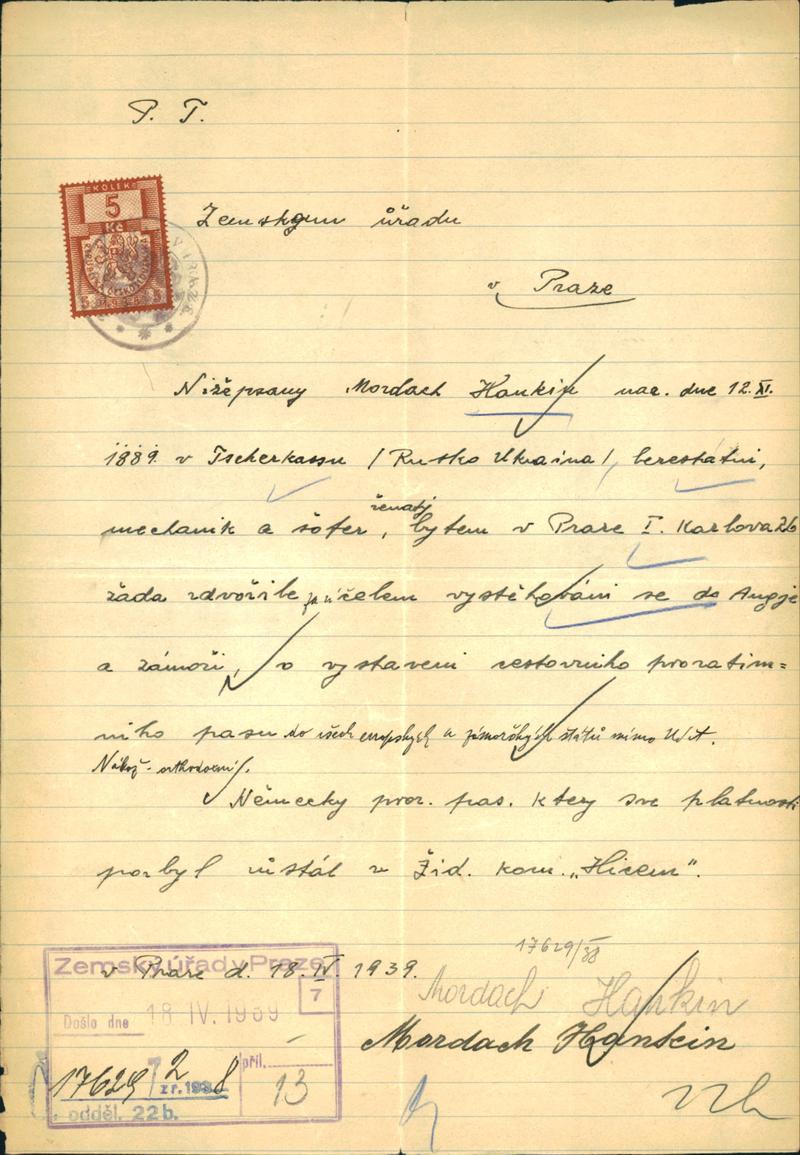 P. T.
KOLEK
5
Kč
Zemskymu úřadu
v Praze
Nižepsany Mordach Hankin nar. dne 12.XI.
1889 v Tscherkassu /Rusko Ukraina/, berestátni,
ženatý
mechanik a šofer, bytem v Praze I. Karlova 26
žada zdvořile za účelem vystěhováni se do Angije
a zámoři, o vystaveni cestovniho provatim=
niho pasu do všech evropských a zámořských států mimo
Nábož. orthodoxní.
Německy prov. pas. ktery sve platnosti
pozbyl ustál v Žid. kom. „Hicem".
17629/38
v Praze d. 18.IV. 1939.
Mordach Hankin
Mordach Hankin
Zemský úřad v Praze
7
Došlo dne 18 IV. 1939
17629/2 zr. 1938
příl. 13
odděl. 22b.